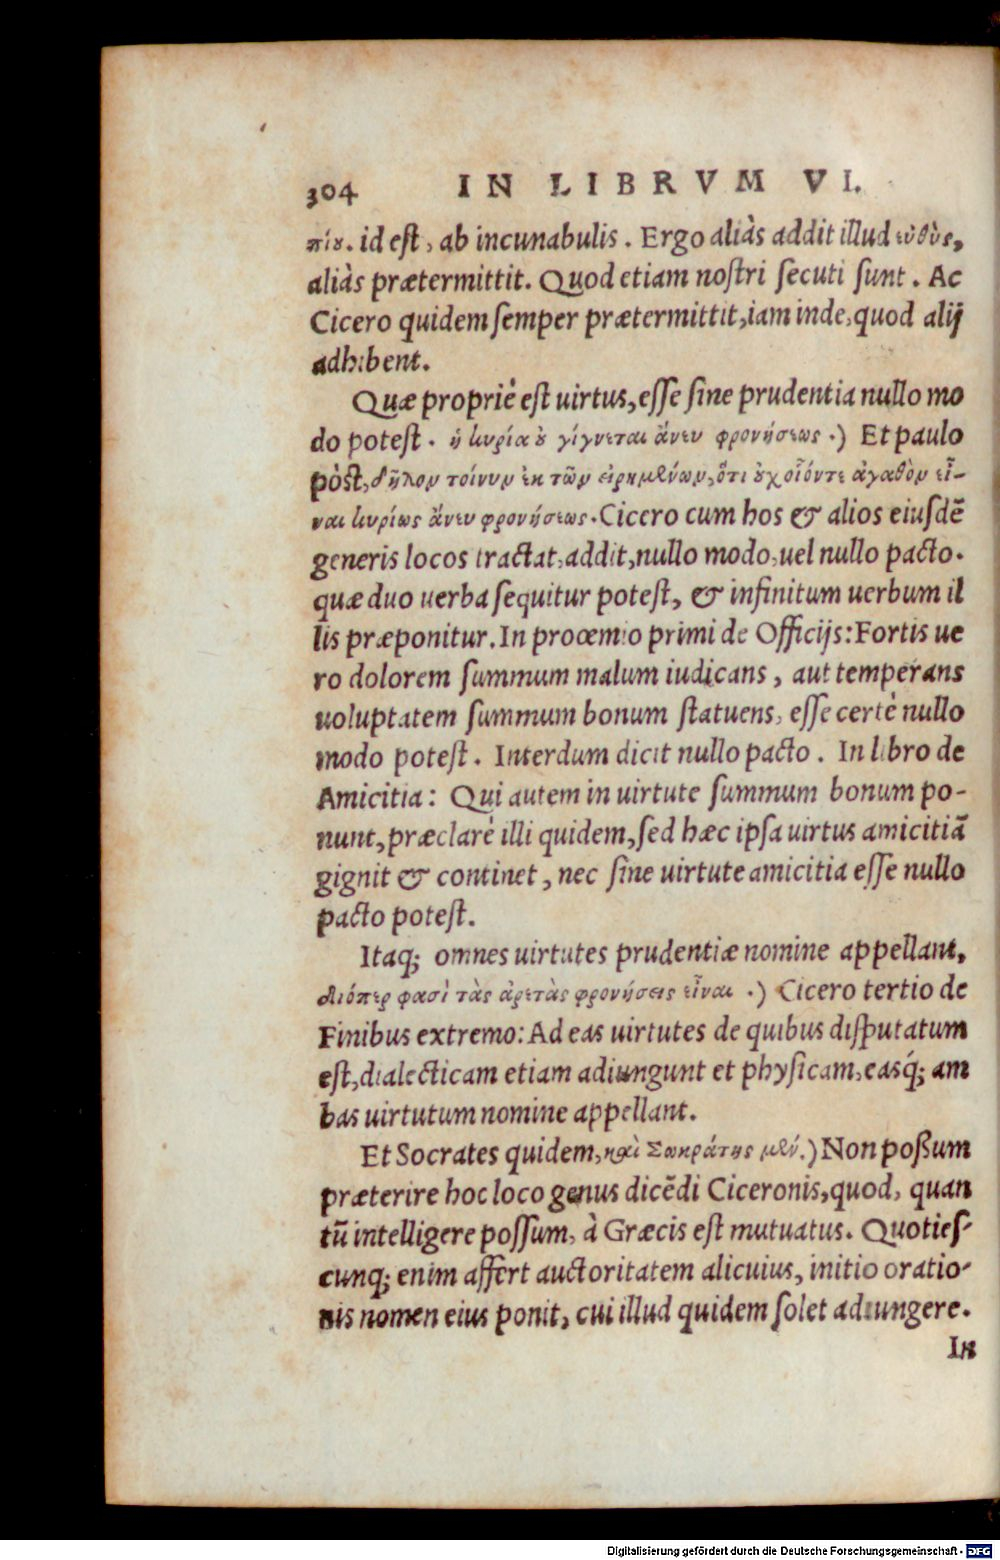 304 IN LIBRVM VI.
πίȣ. id est, ab incunabulis. Ergo aliàs addit illud εὐθὺς,
aliàs prætermittit. Quod etiam nostri secuti sunt. Ac
Cicero quidem semper prætermittit, iam inde, quod alij
adhibent.
Quæ propriè est uirtus, esse sine prudentia nullo mo
do potest. ἡ κυρία ȣ̓ γίγνεται ἄνευ φρονήσεως.) Et paulo
pòst, δῆλον τοίνυν ἐκ τῶν εἰρημένων, ὅτι ȣ̓χ οἷόντε ἀγαθὸν εἶ-
ναι κυρίως ἄνευ φρονήσεως. Cicero cum hos & alios eiusdẽ
generis locos tractat, addit, nullo modo, uel nullo pacto.
quæ duo uerba sequitur potest, & infinitum uerbum il
lis præponitur. In proœmio primi de Officijs: Fortis ue
ro dolorem summum malum iudicans, aut temperans
uoluptatem summum bonum statuens, esse certè nullo
modo potest. Interdum dicit nullo pacto. In libro de
Amicitia: Qui autem in uirtute summum bonum po-
nunt, præclarè illi quidem, sed hæc ipsa uirtus amicitiã
gignit & continet, nec sine uirtute amicitia esse nullo
pacto potest.
Itaq; omnes uirtutes prudentiæ nomine appellant,
διόπερ φασὶ τὰς ἀρετὰς φρονήσεις εἶναι.) Cicero tertio de
Finibus extremo: Ad eas uirtutes de quibus disputatum
est, dialecticam etiam adiungunt et physicam, easq́; am
bas uirtutum nomine appellant.
Et Socrates quidem, καὶ Σωκράτης μέν.) Non poßum
præterire hoc loco genus dicẽdi Ciceronis, quod, quan
tũ intelligere possum, à Græcis est mutuatus. Quoties-
cunq; enim affert auctoritatem alicuius, initio oratio-
nis nomen eius ponit, cui illud quidem solet adiungere.
In
Digitalisierung gefördert durch die Deutsche Forschungsgemeinschaft - DFG